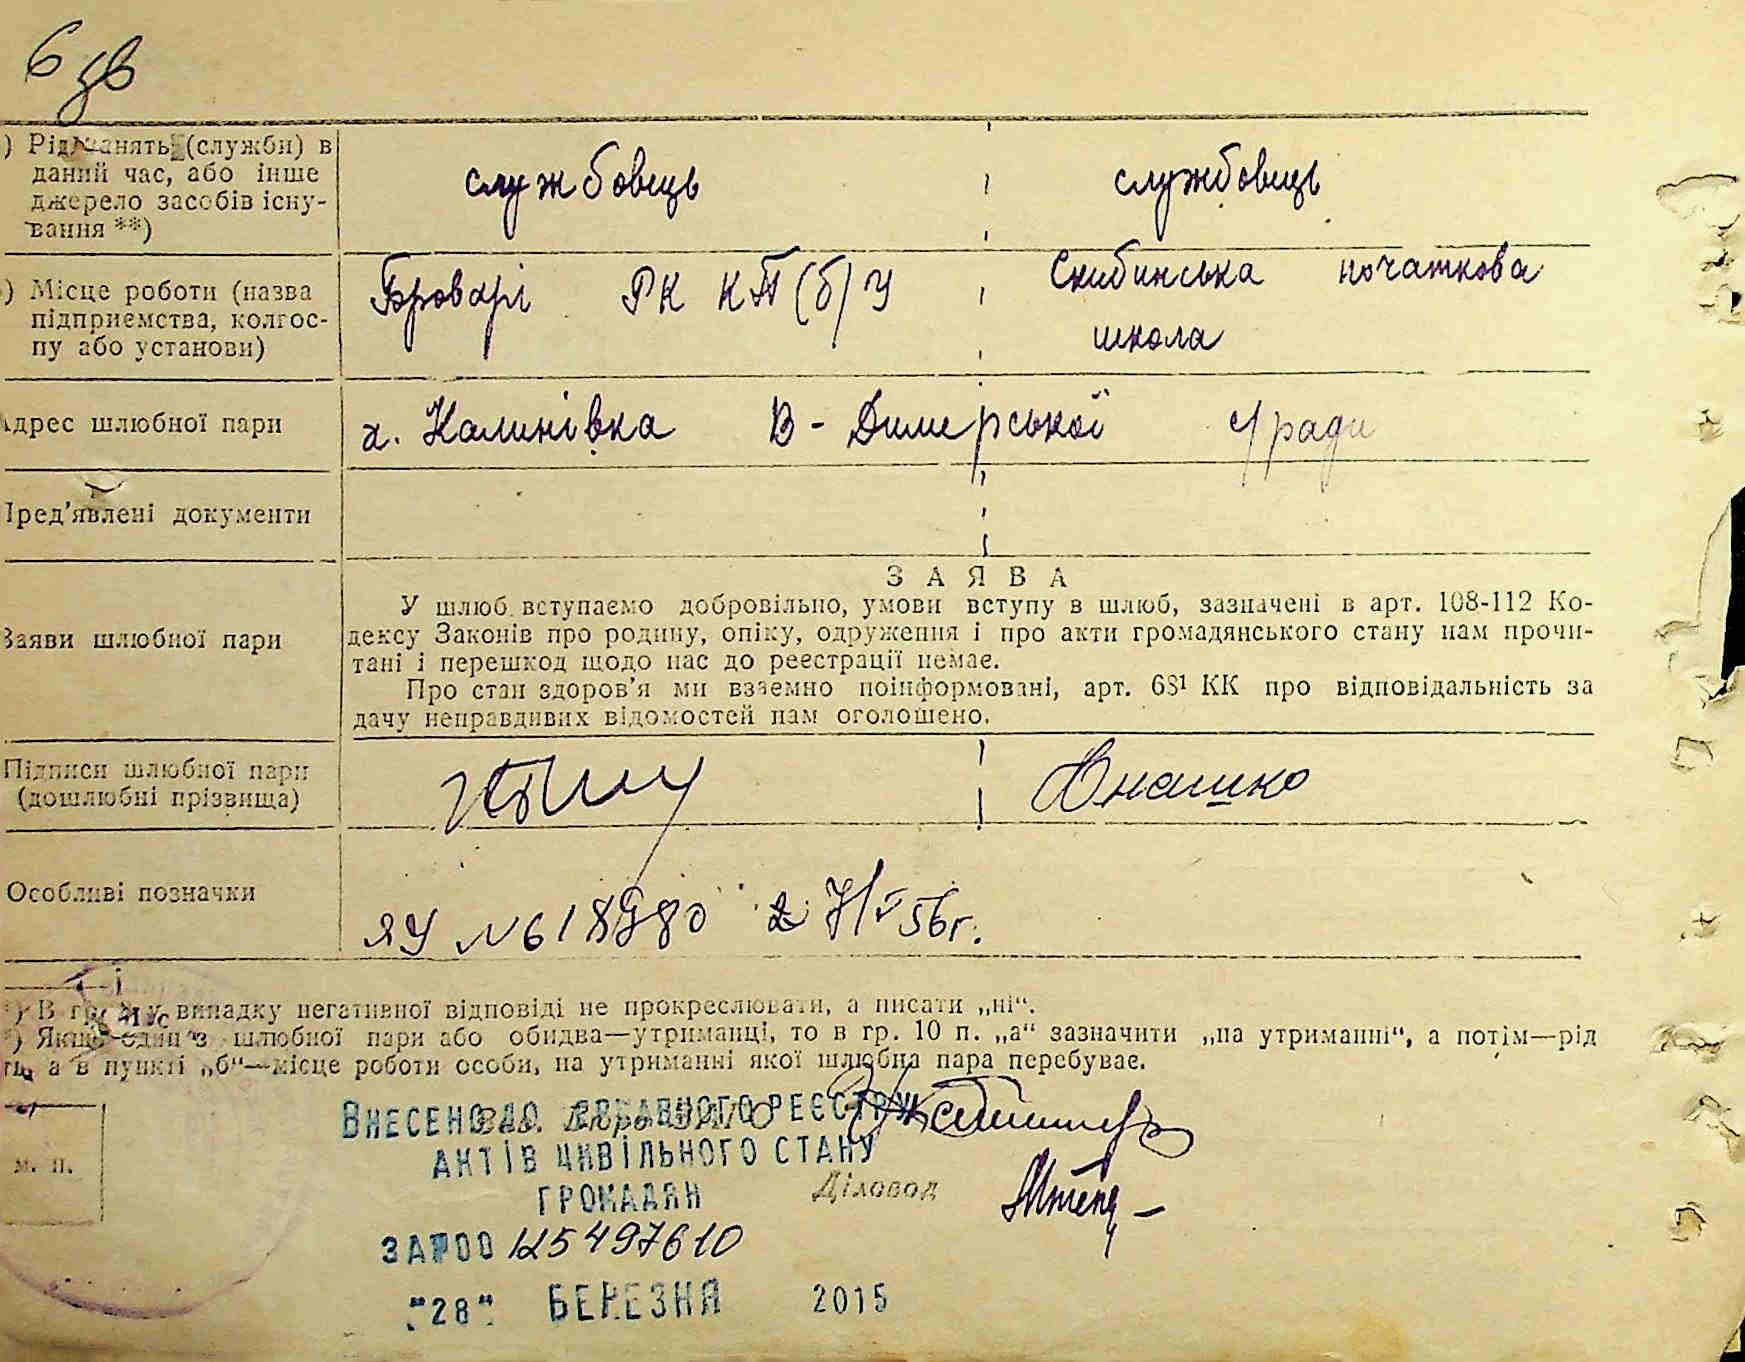 6 зв
) Рід занять (служби) в даний час, або інше джерело засобів існування **)
службовець
службовець
) Місце роботи (назва підприємства, колгоспу або установи)
Броварі РК КП(б)У
Скибинська початкова
школа
Адрес шлюбної пари
х. Калинівка В-Димерської с/ради
Пред'явлені документи
Заяви шлюбної пари
ЗАЯВА
У шлюб вступаємо добровільно, умови вступу в шлюб, зазначені в арт. 108-112 Ко-
дексу Законів про родину, опіку, одруження і про акти громадянського стану нам прочи-
тані і перешкод щодо нас до реєстрації немає.
Про стан здоров'я ми взаємно поінформовані, арт. 68¹ КК про відповідальність за
дачу неправдивих відомостей нам оголошено.
Підписи шлюбної пари
(дошлюбні прізвища)
Юнашко
Особливі позначки
ЯУ № 618980 7/V 56г.
*) В гр. у випадку негативної відповіді не прокреслювати, а писати „ні“.
*) Якщо один з шлюбної пари або обидва—утриманці, то в гр. 10 п. „а“ зазначити „на утриманні“, а потім—рід
а в пункті „б“—місце роботи особи, на утриманні якої шлюбна пара перебуває.
Внесено до Державного реєстру
актів цивільного стану
громадян
м. п.
Діловод
за №00 125497610
"28" березня 2015